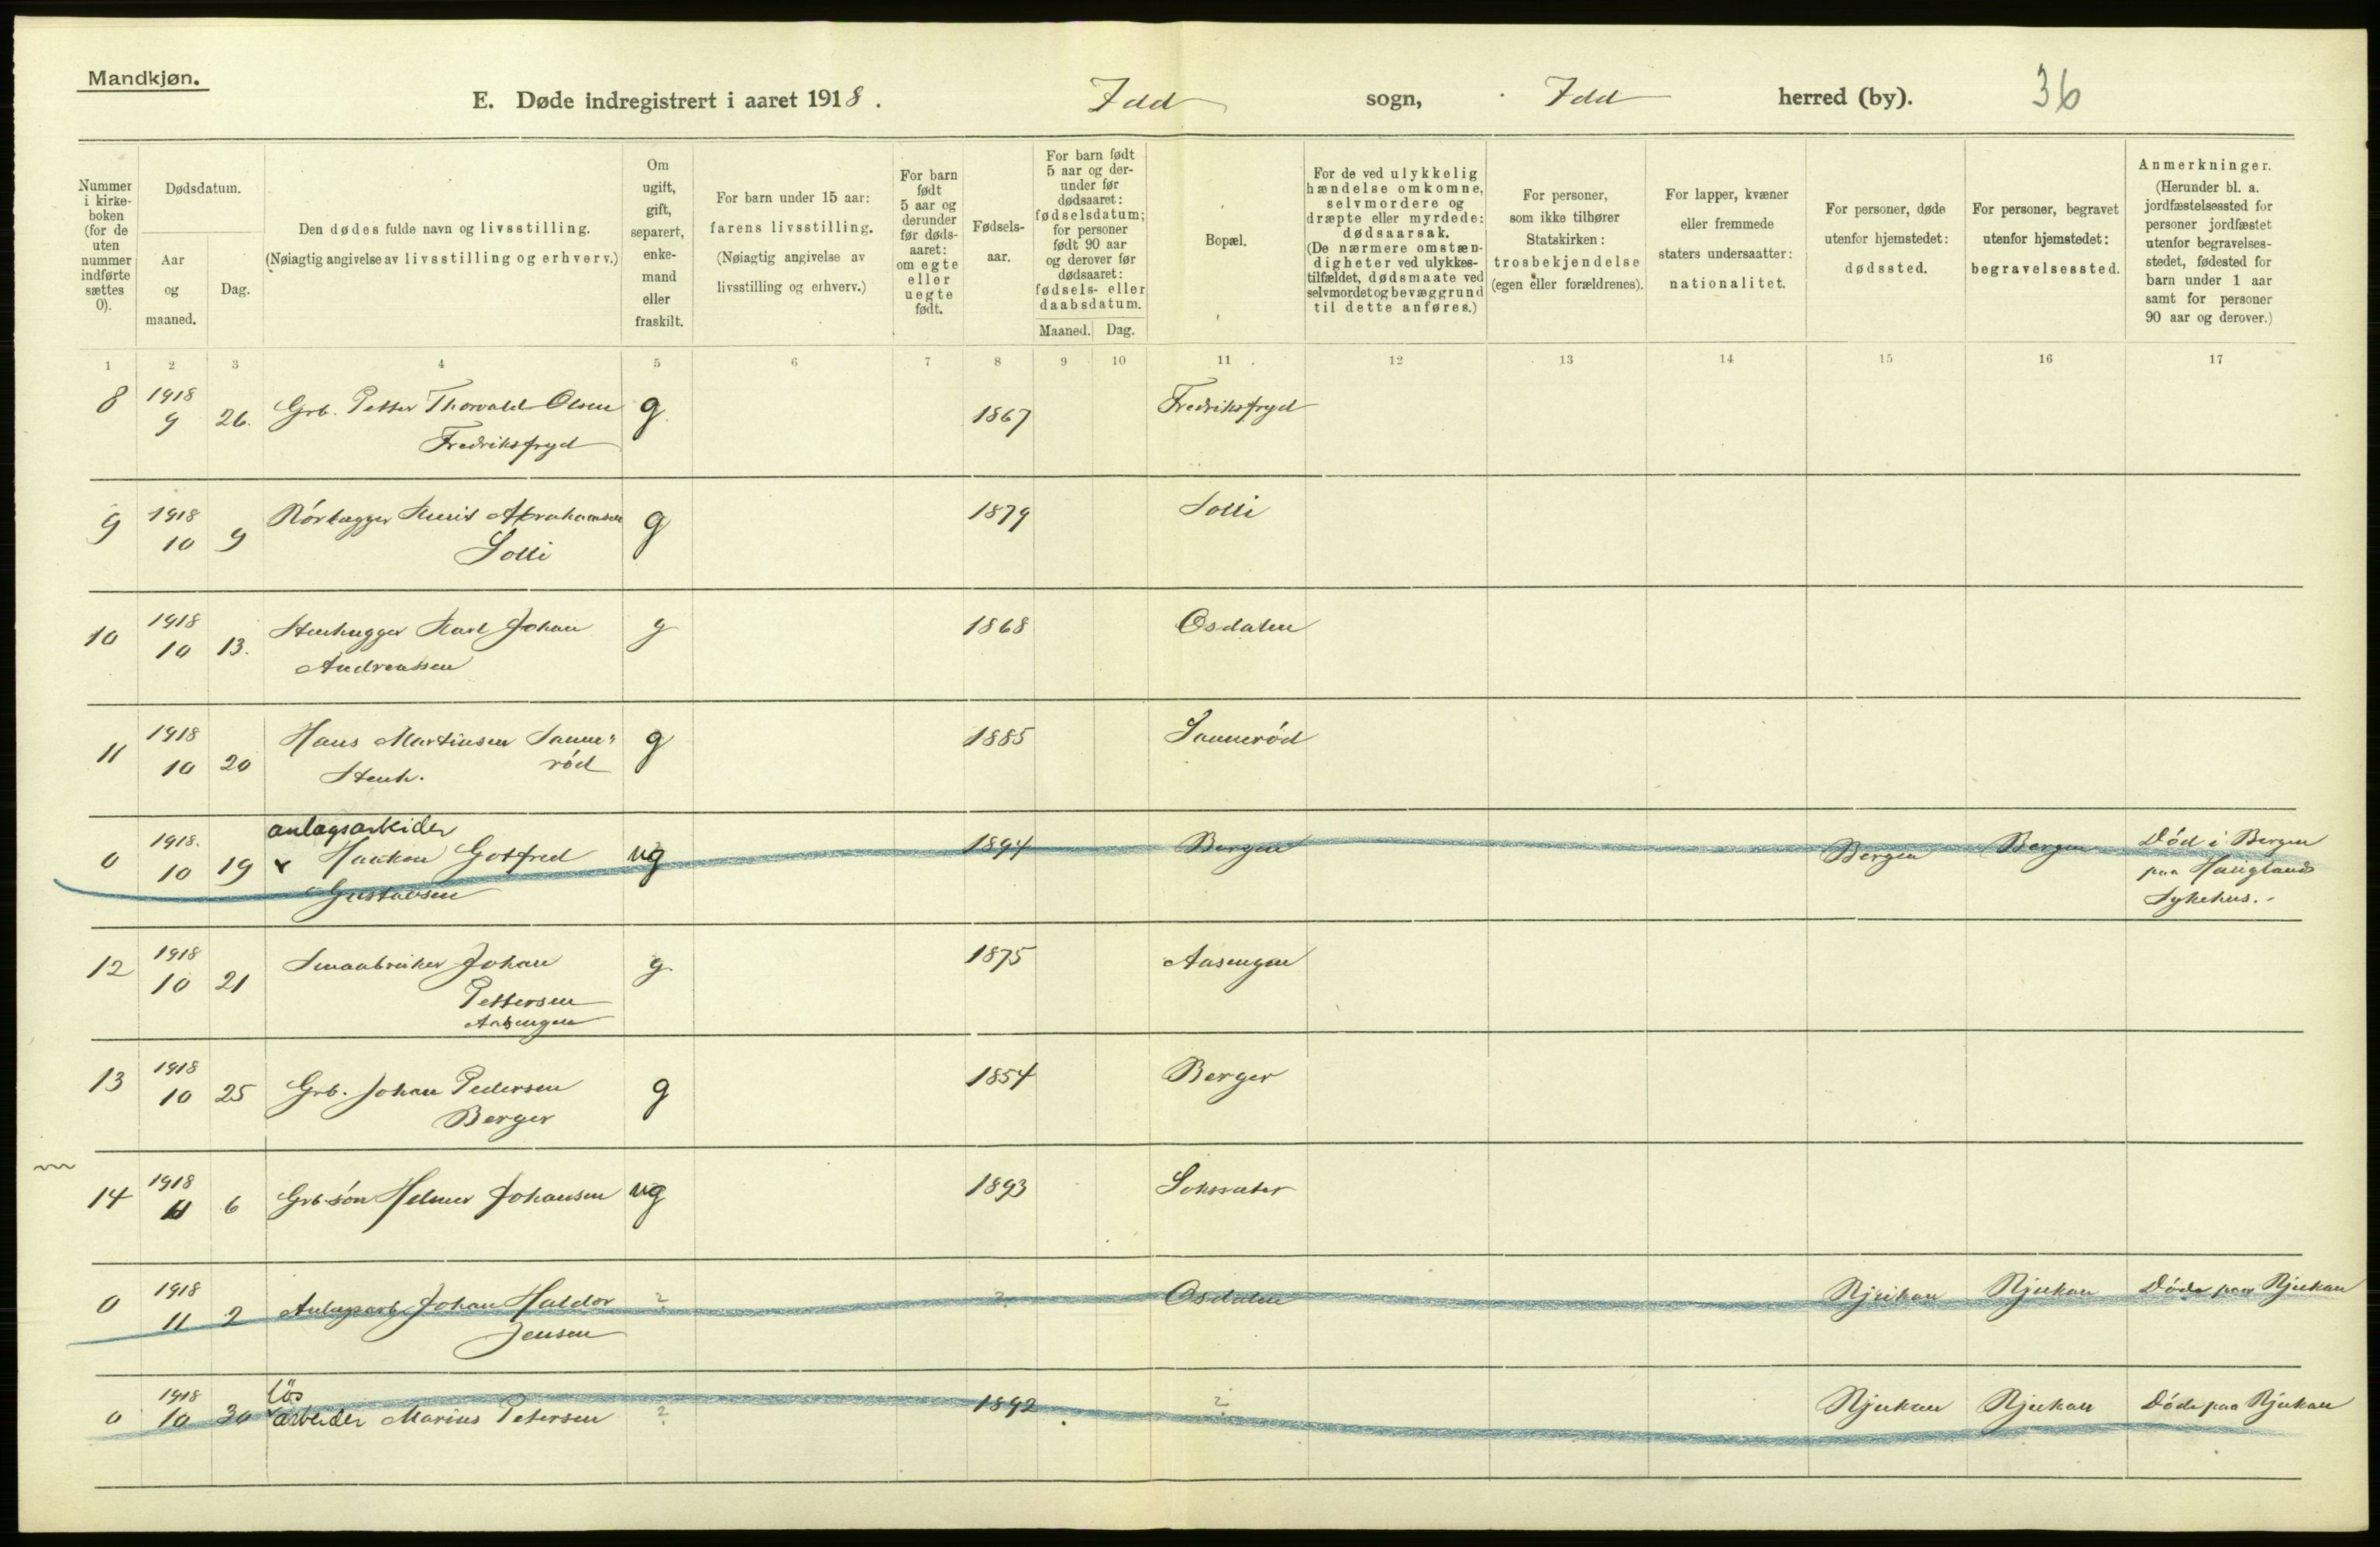 Mandkjøn.
E. Døde indregistrert i aaret 1918. Idd sogn, Idd herred (by). 36
Nummer i kirke-boken (for de uten nummer indførte sættes 0).
Dødsdatum.
Aar og maaned.
Dag.
Den dødes fulde navn og livsstilling.
(Nøiagtig angivelse av livsstilling og erhverv.)
Om ugift, gift, separert, enke-mand eller fraskilt.
For barn under 15 aar:
farens livsstilling.
(Nøiagtig angivelse av livsstilling og erhverv.)
For barn født 5 aar og derunder før døds-aaret: om egte eller uegte født.
Fødsels-aar.
For barn født 5 aar og der-under før dødsaaret: fødselsdatum; for personer født 90 aar og derover før dødsaaret: fødsels- eller daabsdatum.
Maaned. Dag.
Bopæl.
For de ved ulykkelig hændelse omkomne, selvmordere og dræpte eller myrdede: dødsaarsak.
(De nærmere omstæn-digheter ved ulykkes-tilfældet, dødsmaate ved selvmordet og bevæggrund til dette anføres.)
For personer, som ikke tilhører Statskirken: trosbekjendelse (egen eller forældrenes).
For lapper, kvæner eller fremmede staters undersaatter: nationalitet.
For personer, døde utenfor hjemstedet: dødssted.
For personer, begravet utenfor hjemstedet: begravelsessted.
Anmerkninger.
(Herunder bl. a. jordfæstelsessted for personer jordfæstet utenfor begravelses-stedet, fødested for barn under 1 aar samt for personer 90 aar og derover.)
1 2 3 4 5 6 7 8 9 10 11 12 13 14 15 16 17
8 1918 9 26. Grb. Petter Thorvald Olsen g. 1867 Fredriksfryd
Fredriksfryd
9 1918 10 9 Abrahamsen g 1879 Solli
Solli
10 1918 10 13. Stenhugger Karl Johan g 1868 Osdalen
Andreassen
11 1918 10 20 Hans Martinsen Sanne- g 1885 Sannerød
Stenh. rød
anlægsarbeider
0 1918. 10 19 x Haakon Gotfred ug 1894 Bergen Bergen Bergen Død i Bergen
Gustavsen paa Haugland
Sykehus.-
12 1918 10 21 Smaabruker Johan g. 1875 Aasengen
Pettersen
Aasengen
13 1918 10 25 Grb. Johan Pedersen g 1854 Berger
Berger
14 1918 11 6 Grb.søn Helmer Johansen ug 1893
0 1918 11 2 Anlægsarb. Johan Haldor ? ? Osdalen Rjukan Rjukan Døde paa Rjukan
Jensen
løs
0 1918 10 30 arbeider Marius Petersen ? 1892 ? Rjukan Rjukan Døde paa Rjukan